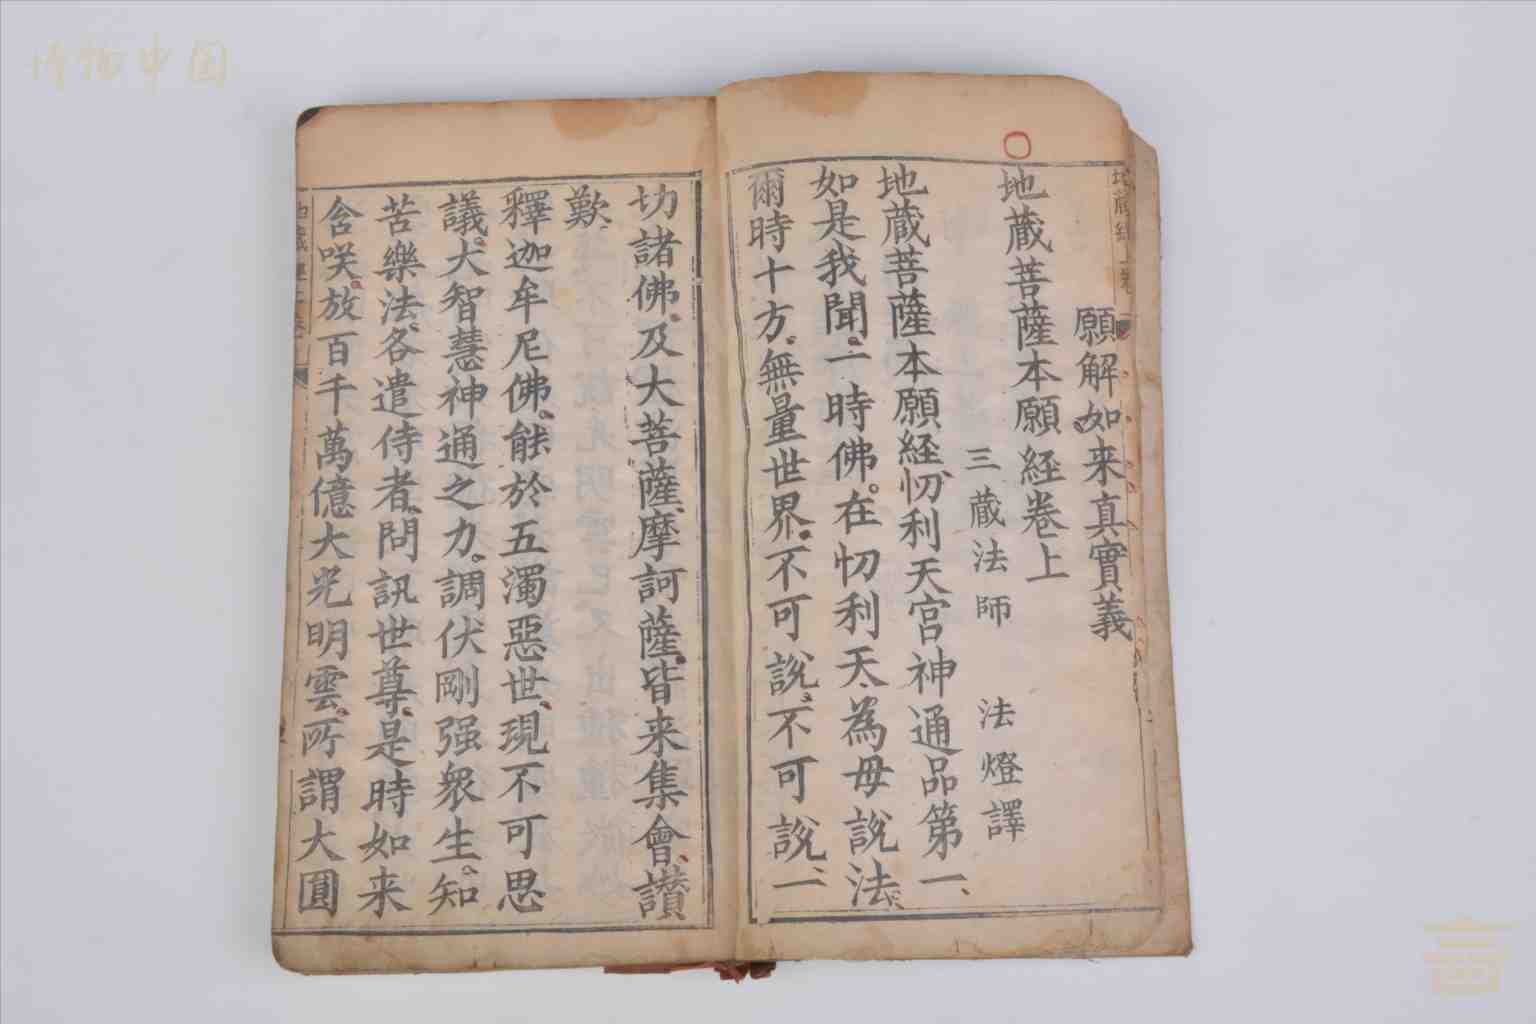 博物中国
願解如来真實義
地蔵菩薩本願経卷上
三蔵法師 法燈譯
地蔵菩薩本願経忉利天宫神通品第一
如是我聞。一時佛。在忉利天。為母說法。
爾時十方。無量世界。不可說。不可說。一
切諸佛。及大菩薩。摩訶薩。皆来集會。讃
歎
釋迦牟尼佛。能於五濁惡世。現不可思
議。大智慧神通之力。調伏剛强衆生。知
苦樂法。各遣侍者。問訊世尊。是時如来
含咲。放百千萬億大光明雲。所謂大圓